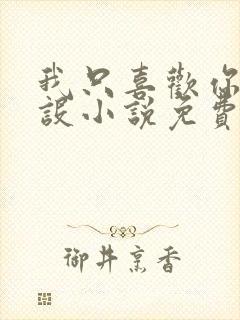 我只喜歡你
設小說免費
御井烹香